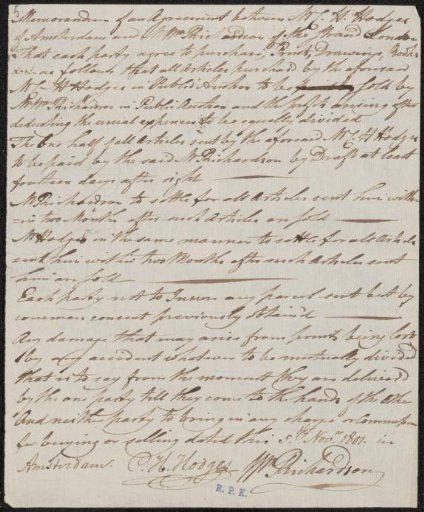 Memorandum of an Agreement between Mr C. H. Hodges
of Amsterdam and Mr Wm Richardson of the Strand London
That each party agree to purchase, Prints, Drawings, Books
&c. as follows that all Articles purchased by the aforesaid
Mr C H Hodges in Public Auction to be sold by
Mr Wm Richardson in Public Auction and the profits arising after
deducting the usual expences to be equally divided
The One half of all Articles sent by the aforesaid Mr C H Hodges
to be paid by the said Mr Richardson by Draft at least
fourteen days after sight
Mr Richardson to settle for all Articles sent him with-
-in two Months after such Articles are sold
Mr Hodges in the same manner to settle for all Articles
sent him within two Months after such Articles sent
him are sold
Each party not to Insure any parcel sent but by
common consent previously obtain'd
Any damage that may arise from prints being lost
by any accident whatsoever to be mutually divided
that is to say from the moment they are delivered
by the one party till they come to the hands of the other
And neither party to bring in any charge or Commission
for buying or selling dated this 5th Novr 1801. in
Amsterdam. C. H. Hodges Wm Richardson
R. P. K.